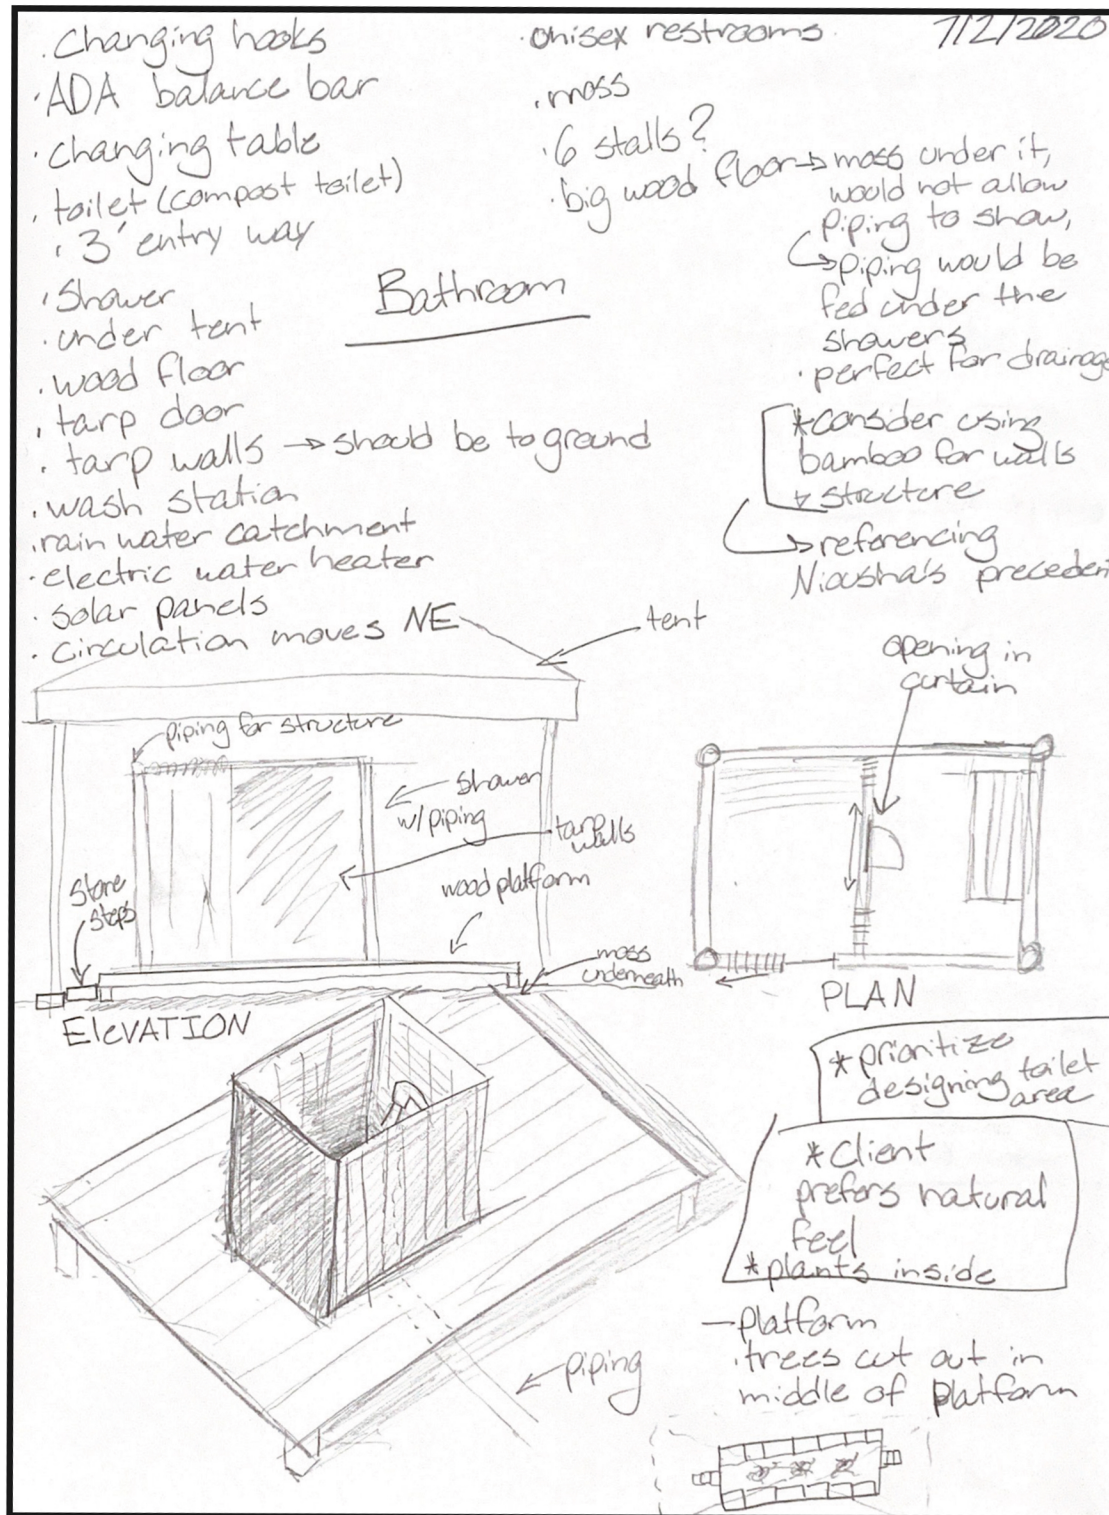 . Changing hooks
· ADA balance bar
· changing table
. toilet (compost toilet)
. 3' entry way
. Shower
. under tent
. wood floor
. tarp door
. tarp walls → should be to ground
. wash station
. rain water catchment
. electric water heater
. solar panels
. circulation moves NE
· unisex restrooms.
7/2/2020
. moss
· 6 stalls?
· big wood floor → moss under it,
would not allow
piping to show,
↳ piping would be
fed under the
showers
· perfect for drainage
Bathroom
*consider using
bamboo for walls
+ structure
↳ referencing
Niousha's precedent
tent
piping for structure
← shower
w/ piping
tarp
walls
wood platform
stone
steps
moss
underneath
ELEVATION
opening in
curtain
PLAN
* prioritize
designing toilet
area
* Client
prefers natural
feel
* plants inside
- platform
· trees cut out in
middle of platform
piping